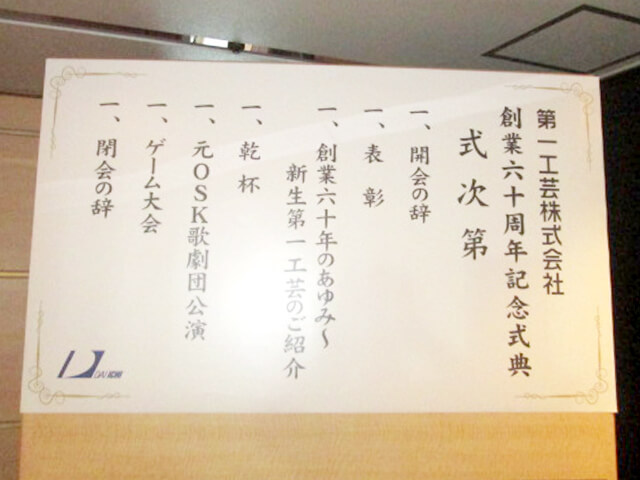 第一工芸株式会社
創業六十周年記念式典
式次第
一、開会の辞
一、表彰
一、創業六十年のあゆみ～
新生第一工芸のご紹介
一、乾杯
一、元OSK歌劇団公演
一、ゲーム大会
一、閉会の辞